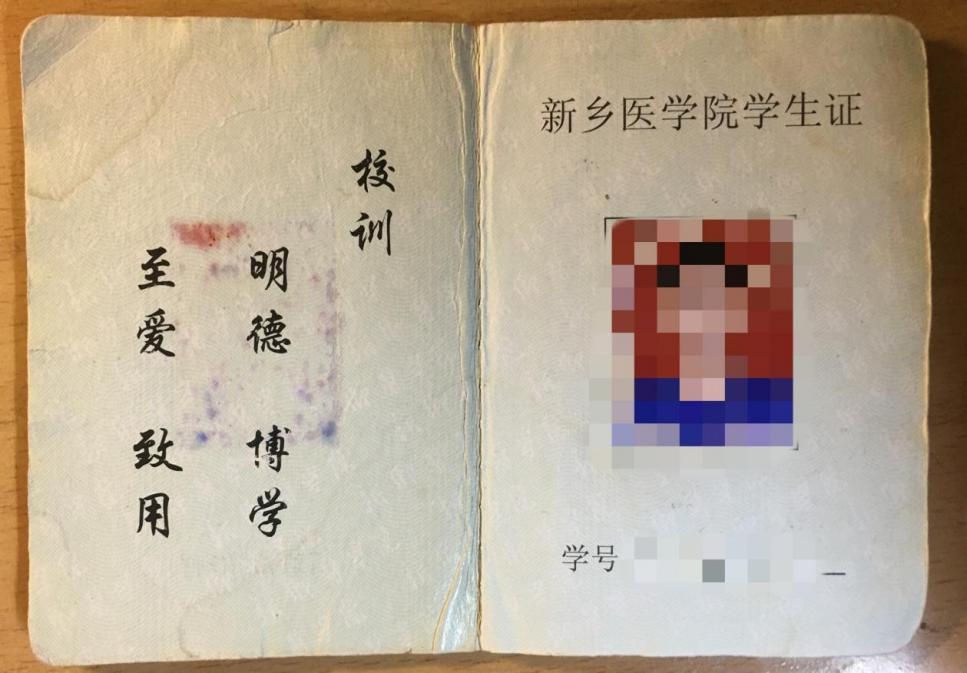 校训
明德 博学
至爱 致用
新乡医学院学生证
学号